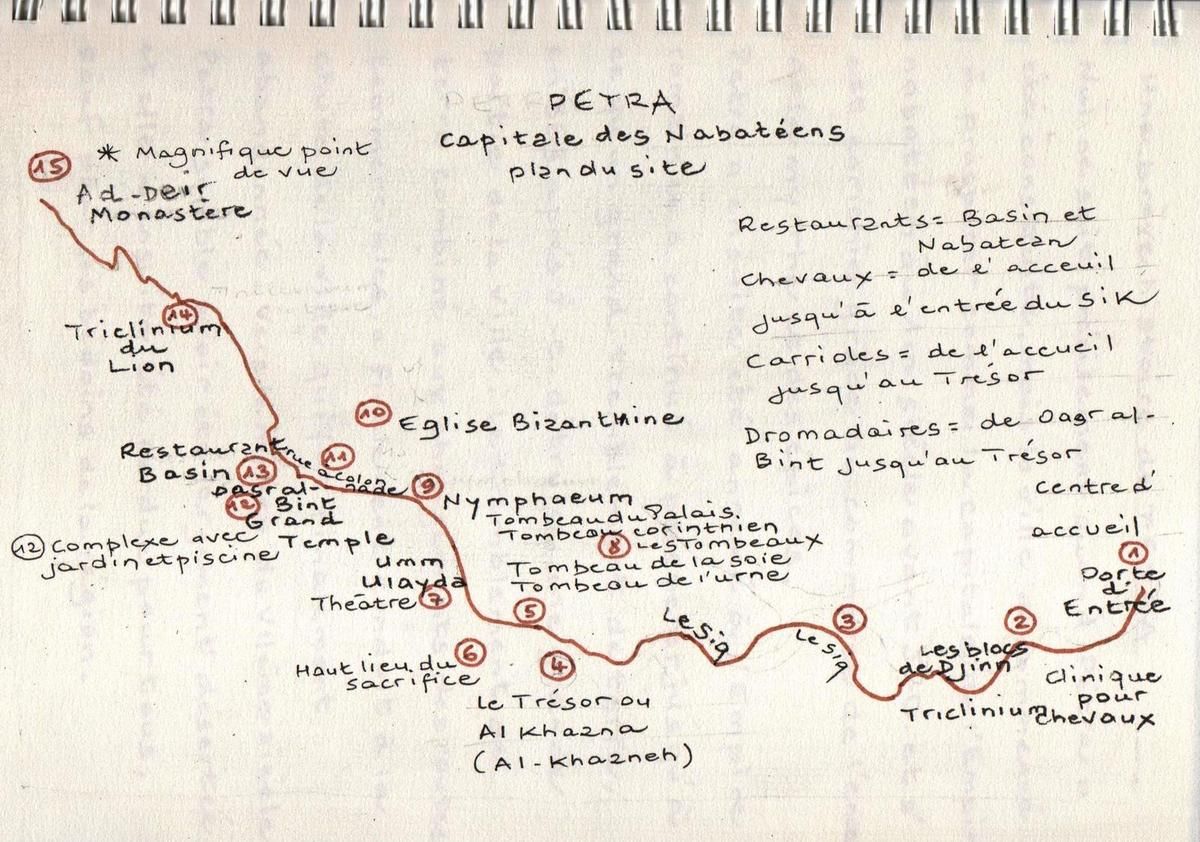 PETRA
Capitale des Nabatéens
plan du site
15
* Magnifique point
de vue
Ad-Deir
Monastère
Restaurants = Basin et
Nabatean
Chevaux = de l'acceuil
jusqu'à l'entrée du Sik
Carrioles = de l'accueil
jusqu'au Trésor
Dromadaires = de Qasral-
Bint jusqu'au Trésor
14
Triclinium
du
Lion
10
Eglise Bizanthine
Restaurant
Basin 13
11
rue à colon
nade
Qasral-
12 Bint
Grand
Temple
12 Complexe avec
jardin et piscine
9
Nymphaeum
Tombeau du Palais.
Tombeau corinthien
8 Les Tombeaux
Tombeau de la soie
Tombeau de l'urne
Umm
Ulayda
Théâtre 7
centre d'
accueil
1
Porte
d'
Entrée
5
Le Siq
3
Le Siq
2
Les blocs
de Djinn
Triclinium
Clinique
pour
chevaux
6
Haut lieu du
sacrifice
4
Le Trésor ou
Al Khazna
(Al-Khazneh)